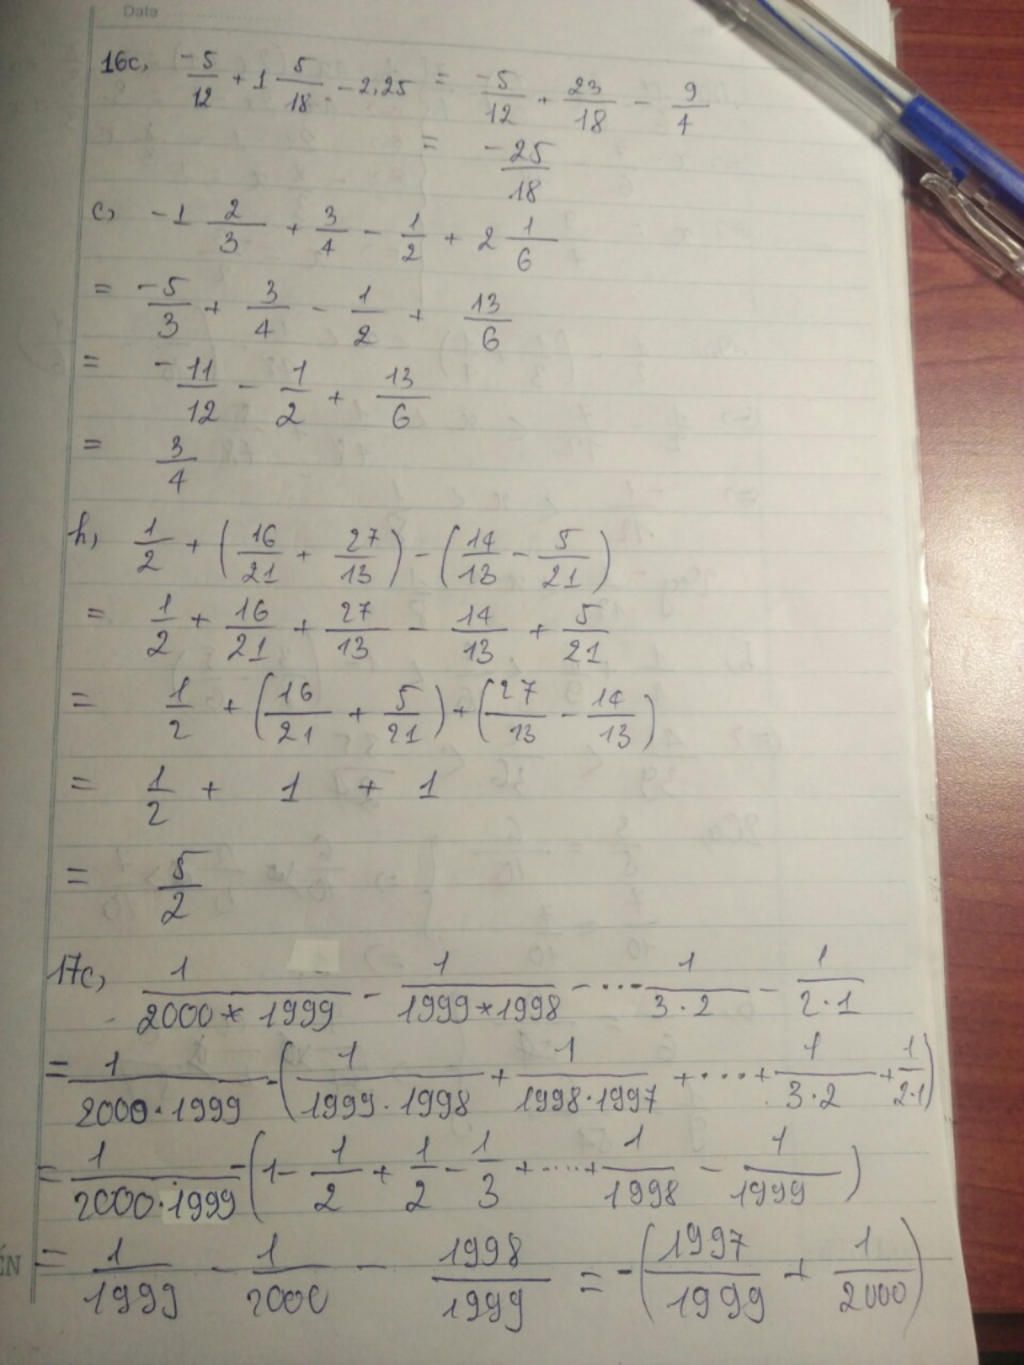 Date
16c, -5/12 + 1 5/18 - 2,25 = -5/12 + 23/18 - 9/4
= -25/18
c, -1 2/3 + 3/4 - 1/2 + 2 1/6
= -5/3 + 3/4 - 1/2 + 13/6
= -11/12 - 1/2 + 13/6
= 3/4
h, 1/2 + (16/21 + 27/13) - (14/13 - 5/21)
= 1/2 + 16/21 + 27/13 - 14/13 + 5/21
= 1/2 + (16/21 + 5/21) + (27/13 - 14/13)
= 1/2 + 1 + 1
= 5/2
17c, 1/2000*1999 - 1/1999*1998 - ... 1/3·2 - 1/2·1
= 1/2000·1999 - (1/1999·1998 + 1/1998·1997 + ... + 1/3·2 + 1/2·1)
= 1/2000·1999 - (1 - 1/2 + 1/2 - 1/3 + ... + 1/1998 - 1/1999)
= 1/1999 - 1/2000 - 1998/1999 = -(1997/1999 + 1/2000)